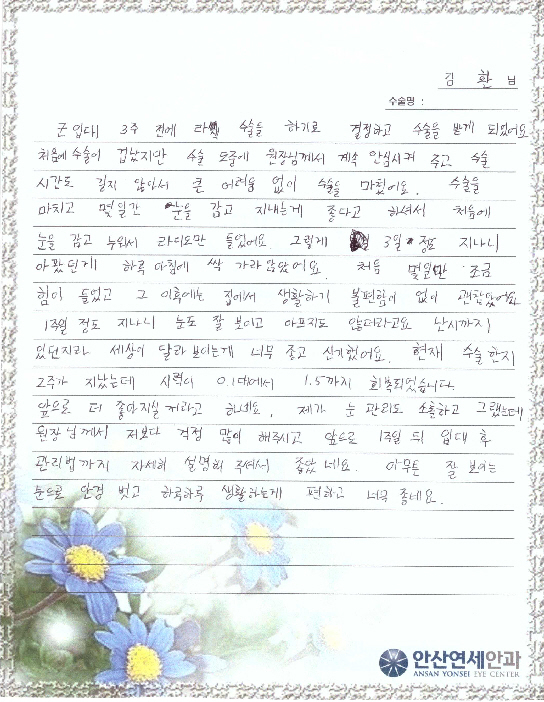 김 환 님
수술명 :
군 입대 3주 전에 라식 수술을 하기로 결정하고 수술을 받게 되었어요
처음에 수술이 겁났지만 수술 도중에 원장님께서 계속 안심시켜 주고 수술
시간도 길지 않아서 큰 어려움 없이 수술을 마쳤어요. 수술을
마치고 몇일간 눈을 감고 지내는게 좋다고 하셔서 처음에
눈을 감고 누워서 라디오만 들었어요. 그렇게 3일 정도 지나니
아팠던게 하루 아침에 싹 가라앉았어요. 처음 몇일만 조금
힘이 들었고 그 이후에는 집에서 생활하기 불편함이 없이 괜찮았어요
13일 정도 지나니 눈도 잘 보이고 아프지도 않더라고요 난시까지
있던지라 세상이 달라보이는게 너무 좋고 신기했어요. 현재 수술한지
2주가 지났는데 시력이 0.1대에서 1.5까지 회복되었습니다.
앞으로 더 좋아지실꺼라고 하네요. 제가 눈 관리도 소홀하고 그랬는데
원장님께서 저보다 걱정 많이 해주시고 앞으로 13일 뒤 입대 후
관리법까지 자세히 설명해 주셔서 좋았네요. 아무튼 잘 보이는
눈으로 안경 벗고 하루하루 생활하는게 편하고 너무 좋네요.
안산연세안과
ANSAN YONSEI EYE CENTER